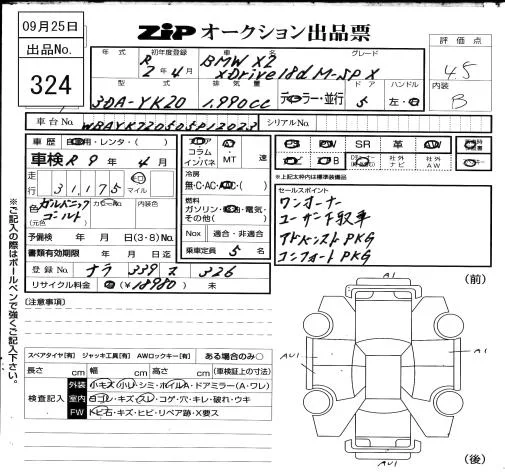 09月25日
出品No.
324
ZIP オークション出品票
年式 初年度登録 車名 グレード
R 2年4月 BMW X2 xDrive18d M-SP X
評価点
4.5
内装
B
型式 排気量 ドア ハンドル
3DA-YK20 1,990cc ディーラー・並行 5 左・右
車台No.
シリアルNo.
車歴 自家用・レンタ・( )
車検 R 9年 4月
走行 31,175 キロ マイル
コラム
インパネ
MT
速
冷房
無・C・AC・AAC・( )
燃料
ガソリン・軽油・電気・
その他( )
色 ガルバニック
ゴールド
(元色)
カラーNo.
内装色
予備検 年 月 日(3・8)No.
NOX 適合・非適合
書類有効期限 年 月 日迄
乗車定員 5 名
登録No. ナラ 339 ス 326
リサイクル料金 済 (¥18980) 未
PS PW SR 革 AW
ナビ
社外
ナビ
社外
AW
*上記太枠内は標準装備品
セールスポイント
ワンオーナー
ユーザー下取車
アドバンスドPKG
コンフォートPKG
[注意事項]
スペアタイヤ[有] ジャッキ工具[有] AWロックキー[有] ある場合のみ○
長さ cm 幅 cm 高さ cm (車検証上の寸法)
検査記入
外装 小キズ・小凹・シミ・ホイルA・ドアミラー(A・ワレ)
室内 ヨゴレ・キズ・スレ・コゲ・穴・キレ・破れ・ウキ
FW トビ石・キズ・ヒビ・リペア跡・X要ス
※ご記入の際はボールペンで強くご記入下さい。
(前)
A1
AU1
A1
AU1
(後)